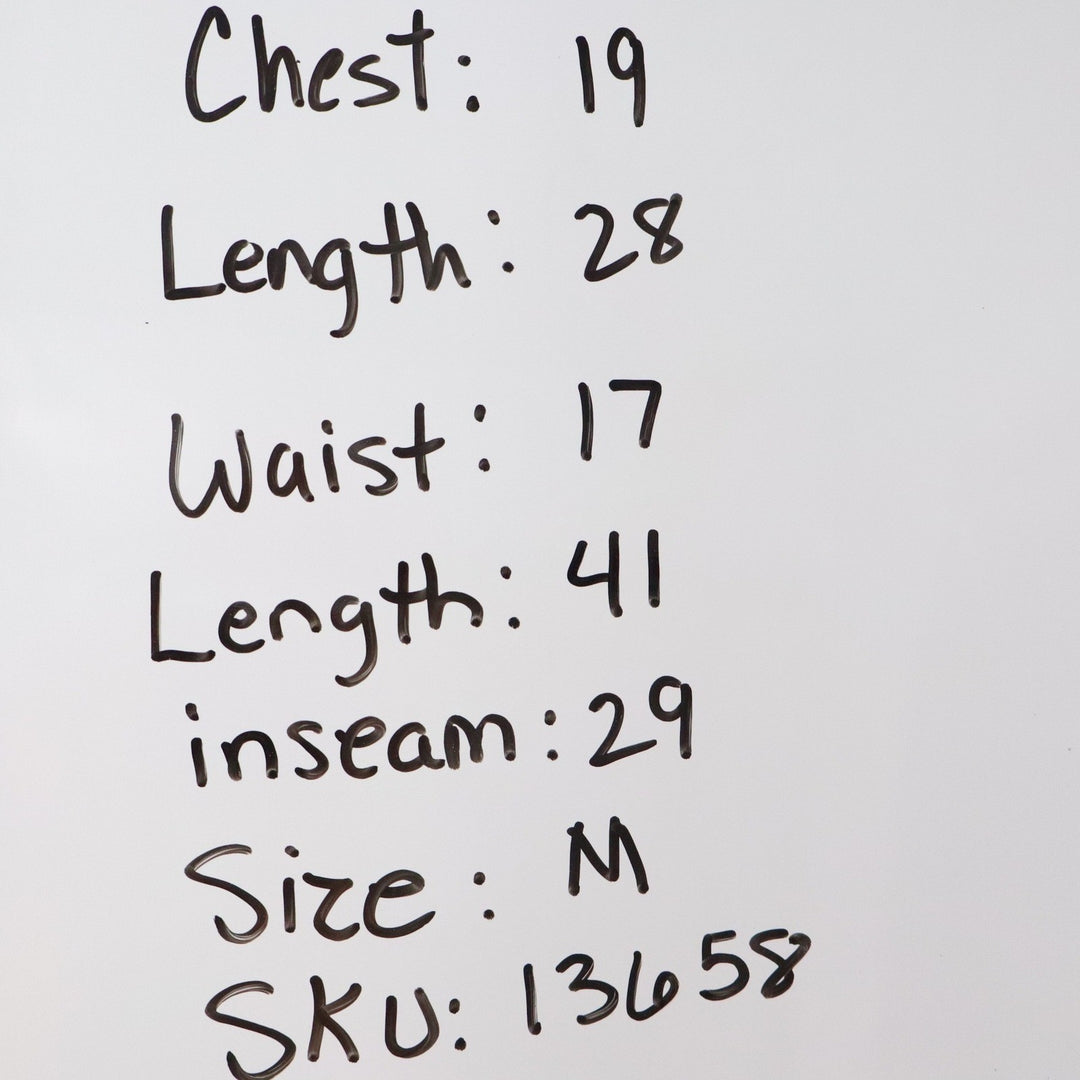 Chest: 19
Length: 28
Waist: 17
Length: 41
inseam: 29
Size: M
SKU: 13658